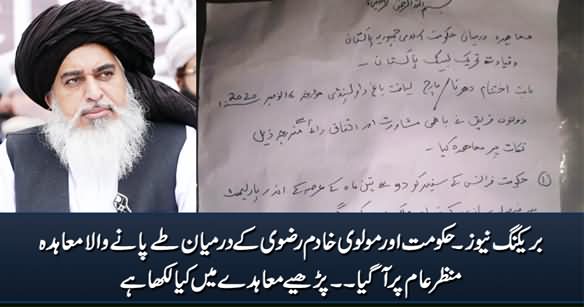 بسم اللہ الرحمن الرحیم
معاہدہ درمیان حکومت اسلامی جمہوریہ پاکستان
و قیادت تحریک لبیک پاکستان ۔
بابت اختتام دھرنا/مارچ لیاقت باغ راولپنڈی مورخہ 16 نومبر 2020
دونوں فریق نے باہمی مشاورت اور اتفاق رائے مندرجہ ذیل
نکات پر معاہدہ کیا ۔
① حکومت فرانس کے سفیر کو دو سے تین ماہ کے عرصہ کے اندر پارلیمنٹ
بریکنگ نیوز ۔ حکومت اور مولوی خادم رضوی کے درمیان طے پانے والا معاہدہ
منظر عام پر آ گیا ۔ ۔ پڑھیے معاہدے میں کیا لکھا ہے